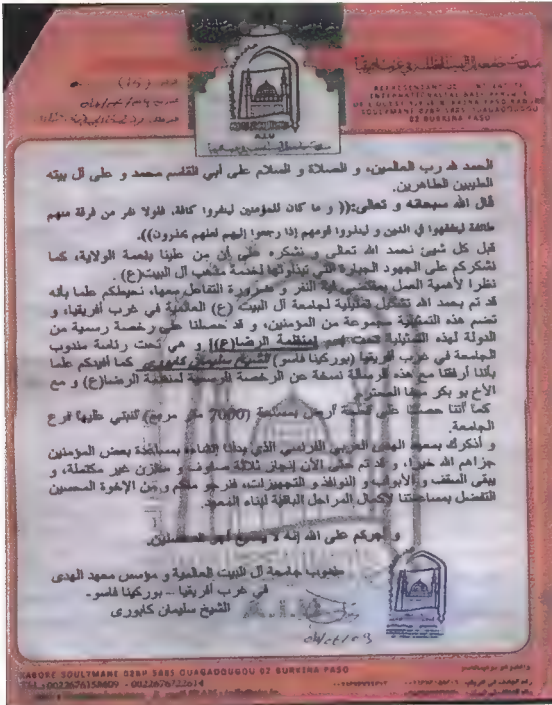 REPRESENTANT DE
INTERNATIONALE
SOULYMANE 02BP 5885 OUAGADOUGOU
02 BURKINA FASO
A.I.U
الحمد لله رب العالمين، و الصلاة و السلام على أبي القاسم محمد و على آل بيته
الطيبين الطاهرين.
قال الله سبحانه و تعالى:(( و ما كان للمؤمنين لينفروا كافة، فلولا نفر من فرقة منهم
طائفة ليتفقهوا في الدين و لينذروا قومهم إذا رجعوا إليهم لعلهم يحذرون)).
قبل كل شيئ نحمد الله تعالى و نشكره على أن من علينا بنعمة الولاية، كما
نشكركم على الجهود الجبارة التي تبذلونها لخدمة مذهب آل البيت(ع) .
نظرا لأهمية العمل بمقتضى آية النفر و ضرورة التفاعل معها، نحيطكم علما بأنه
قد تم بحمد الله تشكيل تمثيلية لجامعة آل البيت (ع) العالمية في غرب أفريقيا، و
تضم هذه التمثيلية مجموعة من المؤمنين، و قد حصلنا على رخصة رسمية من
الدولة لهذه التمثيلية تحت إسم (منظمة الرضا(ع)) و هي تحت رئاسة مندوب
الجامعة في غرب أفريقيا (بوركينا فاسو) الشيخ سليمان كابوري كما أفيدكم علما
بأننا أرفقنا مع هذه الرسالة نسخة عن الرخصة الرسمية لمنظمة الرضا(ع) و مع
الأخ بو بكر ميغا المحترم.
كما أننا حصلنا على قطعة أرض بمساحة (7000 متر مربع) لنبني عليها فرع
الجامعة.
و أذكرك بمعهد الهدى العربي الفرنسي الذي بدأنا إنشاءه بمساعدة بعض المؤمنين
جزاهم الله خيرا، و قد تم حتى الآن إنجاز ثلاثة صفوف و مخازن غير مكتملة، و
يبقى السقف و الأبواب و النوافذ و التجهيزات، فنرجو منكم و من الإخوة المحسنين
التفضل بمساعدتنا لإكمال المراحل الباقية لبناء المعهد.
و أجركم على الله إنه لا يضيع أجر المحسنين.
مندوب جامعة آل البيت العالمية و مؤسس معهد الهدى
في غرب أفريقيا – بوركينا فاسو-
الشيخ سليمان كابوري
KABORE SOULYMANE 02BP 5885 OUAGADOUGOU 02 BURKINA FASO
0022676158609 - 0022676722614